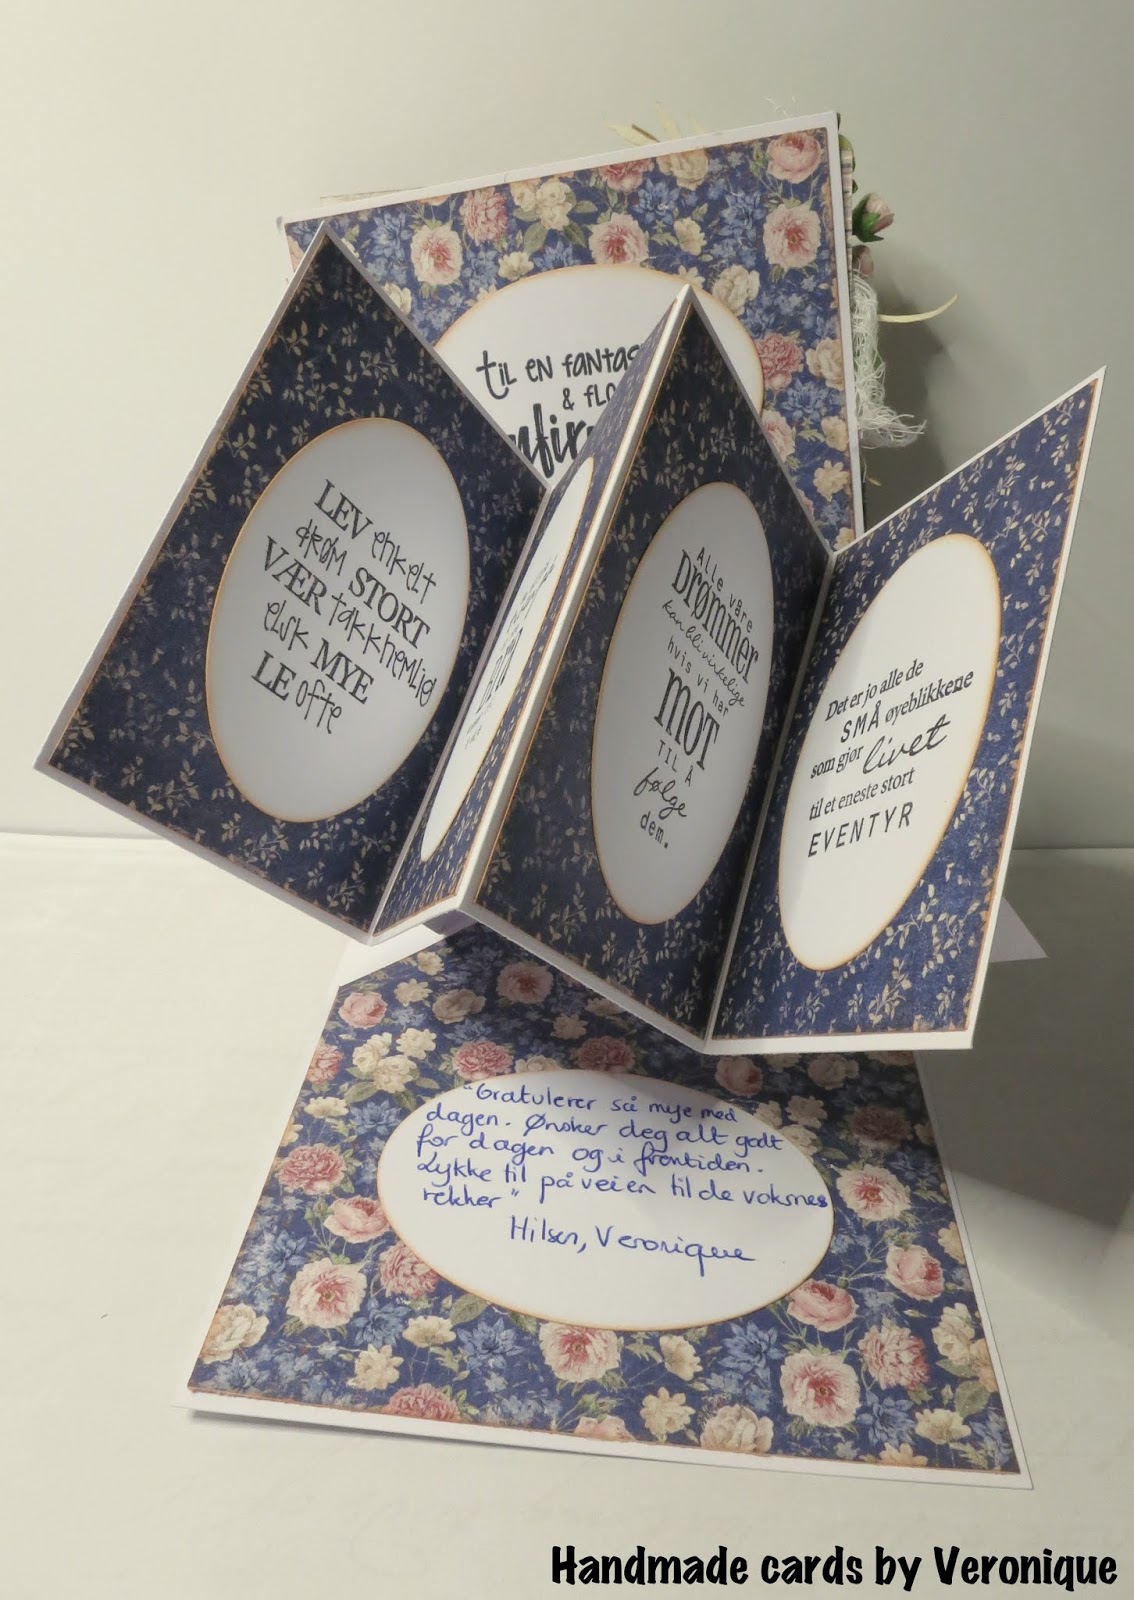 til en fantas
& flo
nfir
LEV enkelt
drøm STORT
VÆR takknemlig
elsk MYE
LE ofte
Alle våre
DRØMMER
kan bli virkelige
hvis vi har
MOT
TIL Å
følge
dem.
Det er jo alle de
SMÅ øyeblikkene
som gjør livet
til et eneste stort
EVENTYR
"Gratulerer så mye med
dagen. Ønsker deg alt godt
for dagen og i fremtiden.
Lykke til på veien til de voksnes
rekker"
Hilsen, Veronique
Handmade cards by Veronique